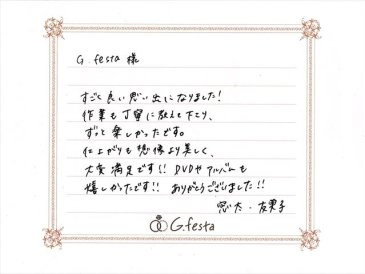 G. festa 様
すごく良い思い出になりました!
作業も丁寧に教えて下さり、
ずっと楽しかったです。
仕上がりも想像より美しく、
大変満足です!! DVDやアルバムも
嬉しかったです!! ありがとうございました!!
悠太・友里子
G.festa